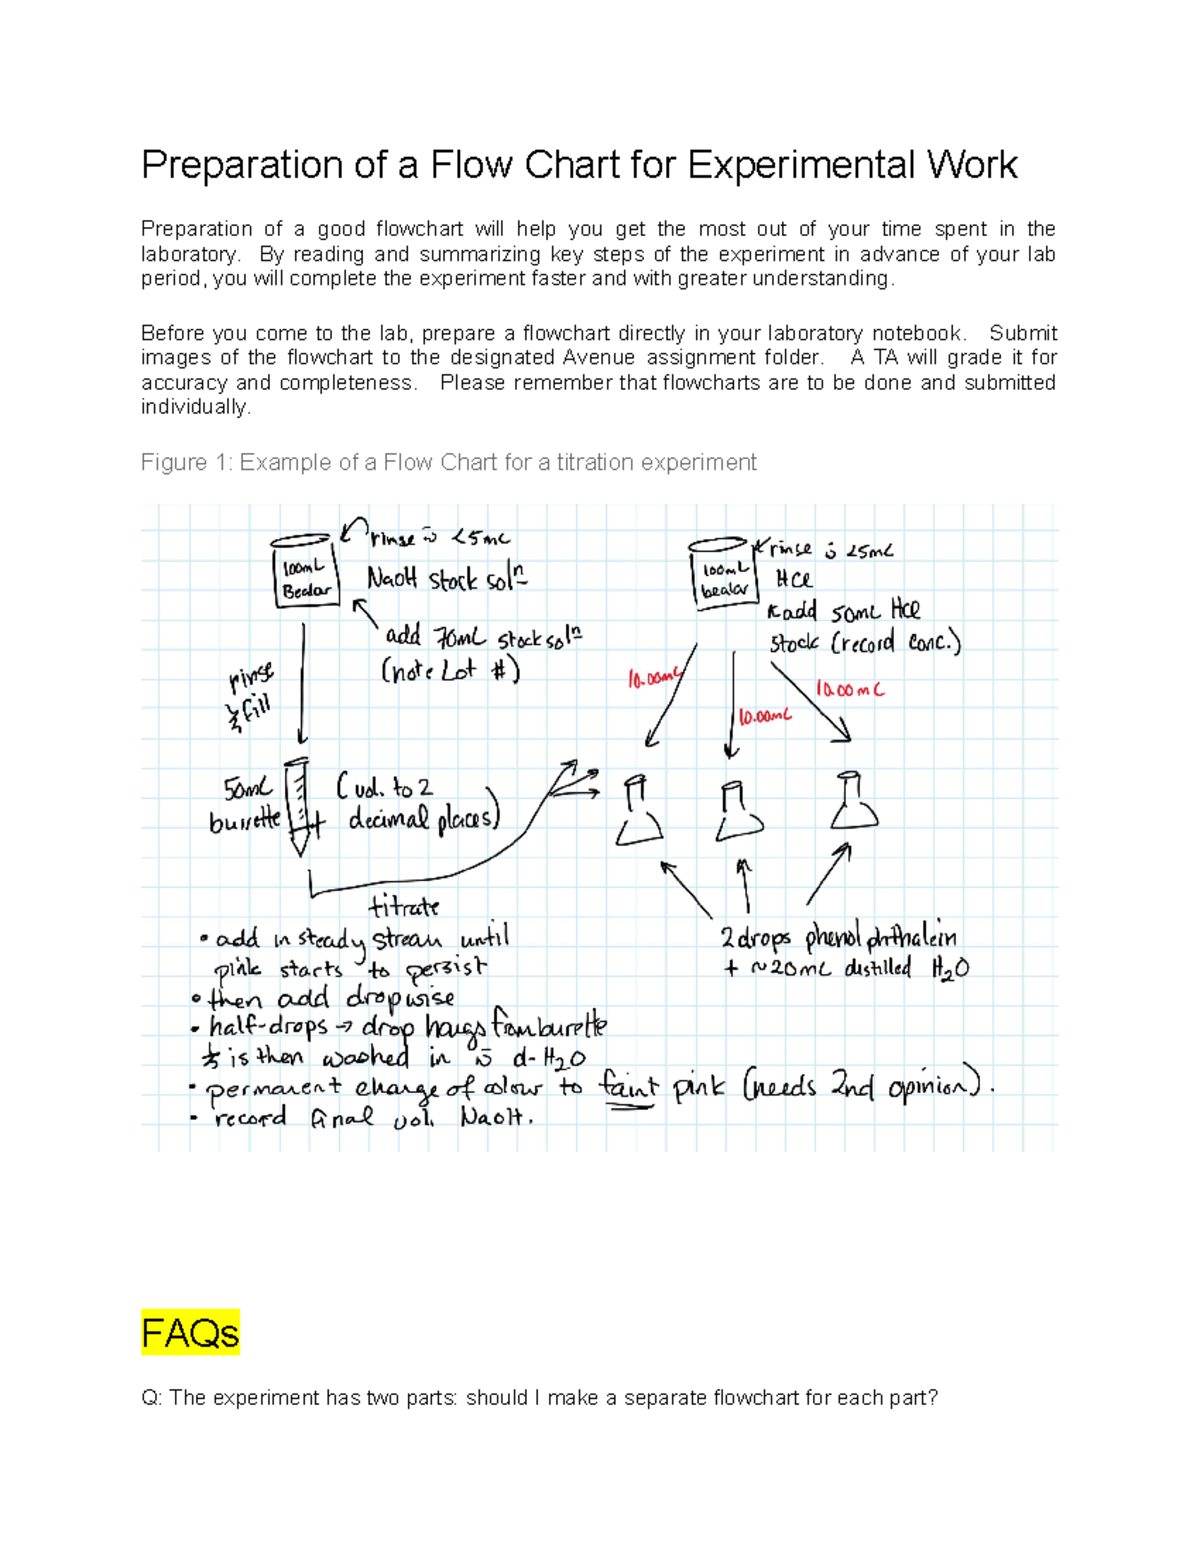 Preparation of a Flow Chart for Experimental Work
Preparation of a good flowchart will help you get the most out of your time spent in the
laboratory. By reading and summarizing key steps of the experiment in advance of your lab
period, you will complete the experiment faster and with greater understanding.
Before you come to the lab, prepare a flowchart directly in your laboratory notebook. Submit
images of the flowchart to the designated Avenue assignment folder. A TA will grade it for
accuracy and completeness. Please remember that flowcharts are to be done and submitted
individually.
Figure 1: Example of a Flow Chart for a titration experiment
100mL
Beaker
rinse c̄ <5mL
NaOH stock soln
add 70mL stock soln
(note Lot #)
rinse
& fill
50mL
burrette
(vol. to 2
decimal places)
100mL
beaker
rinse c̄ <5mL
HCl
add 50mL HCl
stock (record conc.)
10.00mL
10.00mL
10.00mL
titrate
2 drops phenolphthalein
+ ~20mL distilled H2O
• add in steady stream until
pink starts to persist
• then add dropwise
• half-drops → drop hangs from burette
& is then washed in c̄ d-H2O
• permanent change of colour to faint pink (needs 2nd opinion).
• record final vol. NaOH.
FAQs
Q: The experiment has two parts: should I make a separate flowchart for each part?